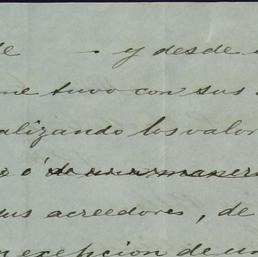 de . y desde
me tuvo con sus
alizando los valor
o ó de una manera
sus acreedores, de
n excepcion de un